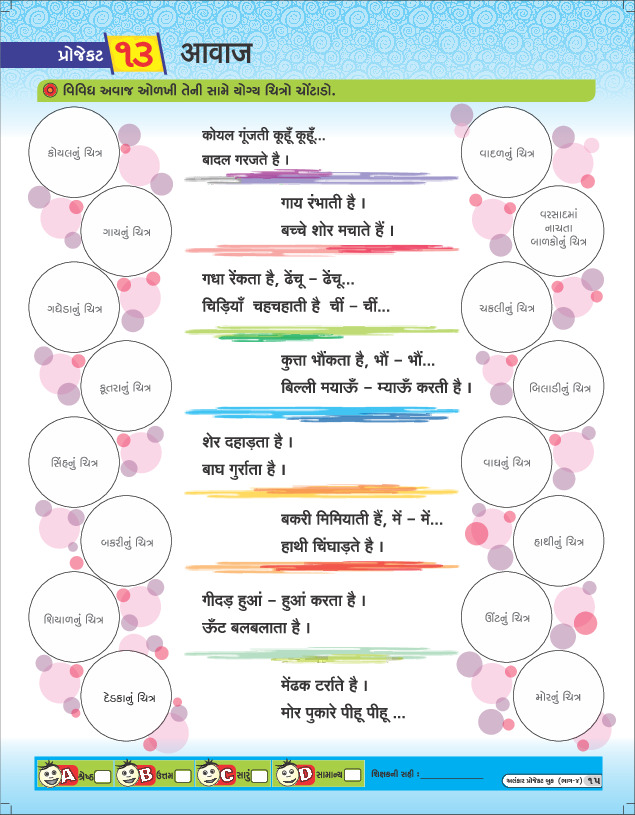 પ્રોજેકટ ૧૩ आवाज
વિવિધ અવાજ ઓળખી તેની સામે યોગ્ય ચિત્રો ચોંટાડો.
कोयल गूंजती कूहूँ कूहूँ...
કોયલનું ચિત્ર
વાદળનું ચિત્ર
बादल गरजते है ।
गाय रंभाती है ।
ગાયનું ચિત્ર
વરસાદમાં
નાચતા
બાળકોનું ચિત્ર
बच्चे शोर मचाते हैं ।
गधा रेंकता है, ढेंचू – ढेंचू...
ગધેડાનું ચિત્ર
ચકલીનું ચિત્ર
चिड़ियाँ चहचहाती है चीं – चीं...
कुत्ता भौंकता है, भौं – भौं...
કૂતરાનું ચિત્ર
બિલાડીનું ચિત્ર
बिल्ली मयाऊँ – म्याऊँ करती है ।
शेर दहाड़ता है ।
સિંહનું ચિત્ર
વાઘનું ચિત્ર
बाघ गुर्राता है ।
बकरी मिमियाती हैं, में – में...
બકરીનું ચિત્ર
હાથીનું ચિત્ર
हाथी चिंघाड़ते है ।
गीदड़ हुआं – हुआं करता है ।
શિયાળનું ચિત્ર
ઊંટનું ચિત્ર
ऊँट बलबलाता है ।
मेंढक टर्राते है ।
દેડકાનું ચિત્ર
મોરનું ચિત્ર
मोर पुकारे पीहू पीहू ...
A શ્રેષ્ઠ B ઉત્તમ C સારું D સામાન્ય શિક્ષકની સહી :
અલંકાર પ્રોજેકટ બુક (ભાગ-૪) ૧૫